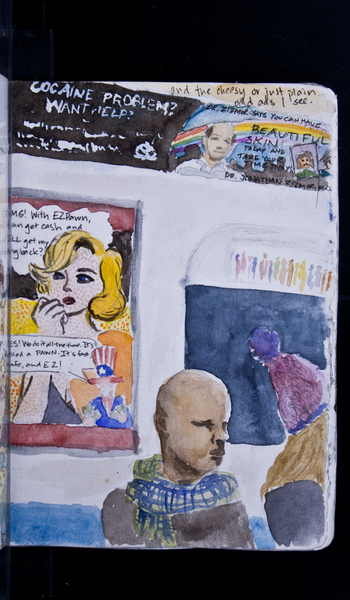 COCAINE PROBLEM?
WANT HELP?
and the cheesy or just plain
odd ads I see.
DR. ZIZMOR SAYS YOU CAN HAVE
BEAUTIFUL
SKIN
TODAY AND
TAKE YOU
TIME TODAY!
DR. JONATHAN ZIZMOR, MD
OMG! With EZPawn,
can get cash and
STILL get my
ring back?
YES! We do it all the time. It's
called a PAWN. It's fast,
safe, and EZ!